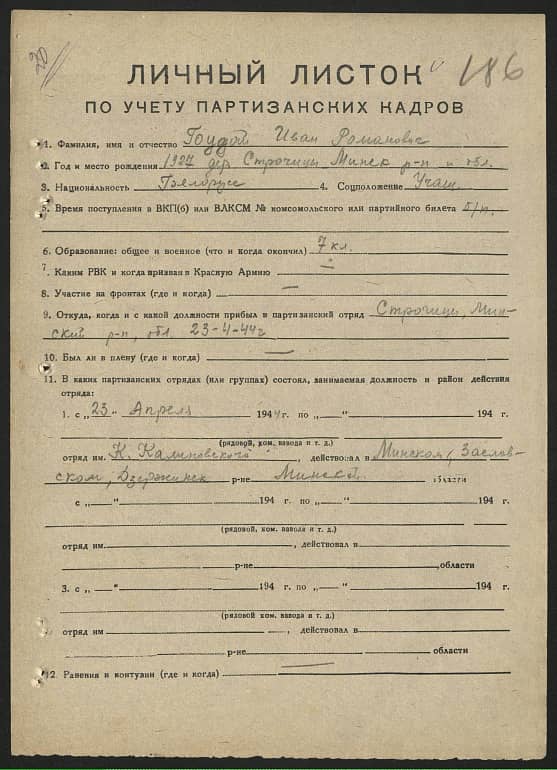 20
186
ЛИЧНЫЙ ЛИСТОК
ПО УЧЕТУ ПАРТИЗАНСКИХ КАДРОВ
1. Фамилия, имя и отчество Иван Романович
2. Год и место рождения 1927 дер. Строчицы Минск р-н и обл.
3. Национальность Белорусс 4. Соцположение Учащ.
5. Время поступления в ВКП(б) или ВЛКСМ № комсомольского или партийного билета б/п.
6. Образование: общее и военное (что и когда окончил) 7 кл.
7. Каким РВК и когда призван в Красную Армию —
8. Участие на фронтах (где и когда) —
9. Откуда, когда и с какой должности прибыл в партизанский отряд Строчицы, Мин-
ский р-н, обл. 23-4-44 г
10. Был ли в плену (где и когда) —
11. В каких партизанских отрядах (или группах) состоял, занимаемая должность и район действия
отряда:
1. с „23“ Апреля 1944 г. по „—“ 194 г.
(рядовой, ком. взвода и т. д.)
отряд им. К. Калиновского, действовал в Минском, Заслав-
ском, Дзержинск р-не Минской области
с „—“ 194 г. по „—“ 194 г.
(рядовой, ком. взвода и т. д.)
отряд им. , действовал в
р-не , области
3. с „—“ 194 г. по „—“ 194 г.
(рядовой, ком. взвода и т. д.)
отряд им , действовал в
р-не области
12. Ранения и контузии (где и когда) —